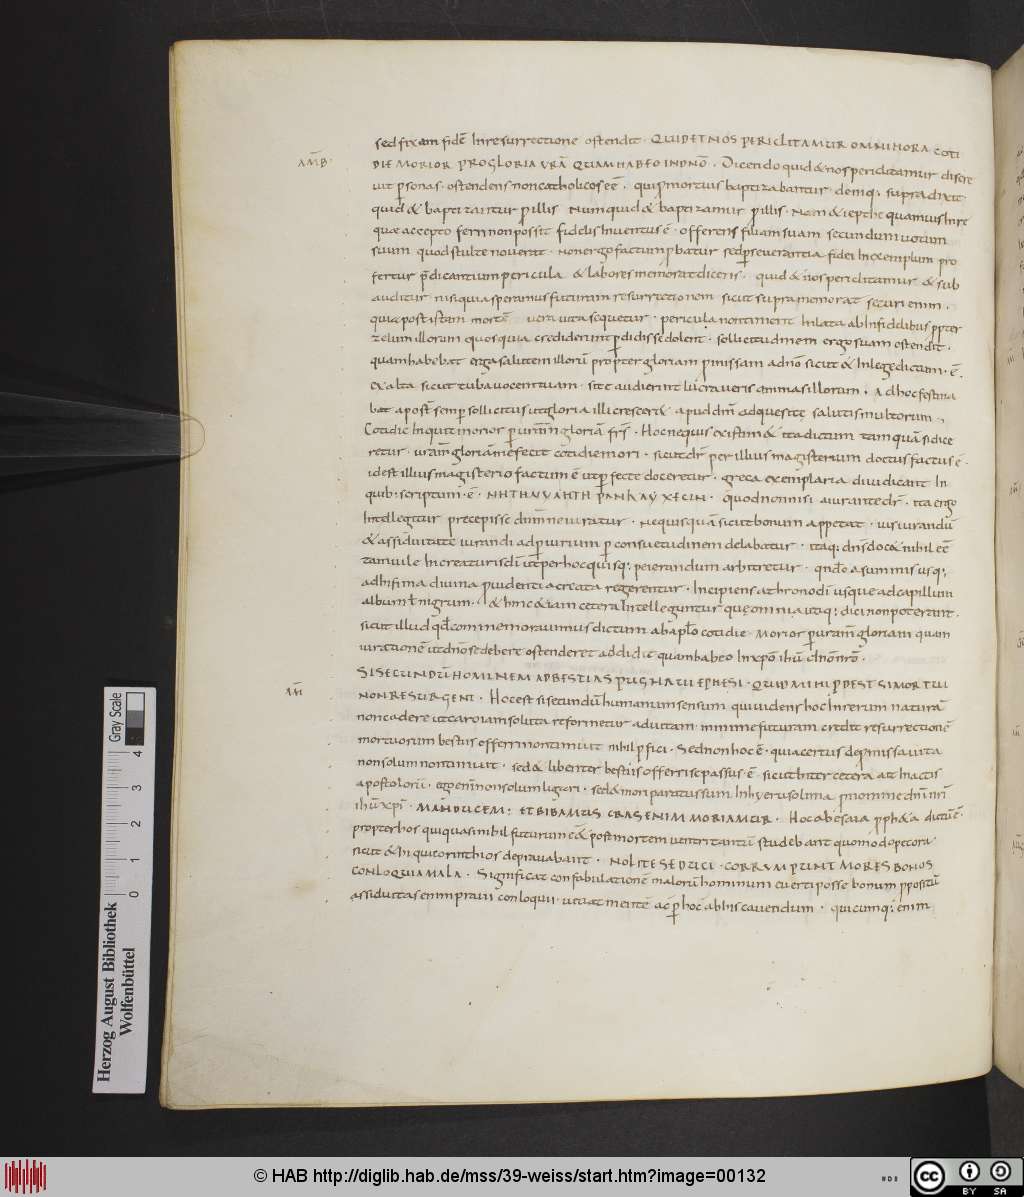 sed fixam fidē In resurrectione ostendit · QUID ET NOS PERICLITAMUR OMNI HORA · COTI
AMB·
DIE MORIOR PRO GLORIA VRĀ QUAM HABEO IN DNŌ · Dicendo quid & nos periclitamur discre
vit personas · ostendens non catholicos eē · qui p mortuis baptizabantur · deniq; supra dixit
quid & baptizantur p illis Numquid & baptizamur p illis · Nam & iepthe quamuis In re
quae accepto ferri non possit fidelis Inventus ē · offerens filiam suam secundum votum
suum quod stulte noverat · Non ergo factum pbatur sed perseverantia fidei In exemplum pro
fertur p̄dicantium pericula & labores memorat dicens · quid & nos periclitamur & sub
auditur nisi quia speramus futuram resurrectionem sicut supra memorat securi enim ·
quia post istam mortē vera vita sequetur · pericula non timent Inlata ab Infidelibus ppter
zelum illorum quos quia crediderint perdidisse dolent · sollicitudinem ergo suam ostendit ·
quam habebat erga salutem illorū propter gloriam pmissam a dnō sicut & In lege dictum · ē ·
exalta sicut tuba vocem tuam · si te audierint lucraveris animas illorum · Ad hoc festina
bat apost semper sollicitus ut gloria illi cresceret & apud dm̄ adquesitę salutis multorum ·
Cotidie Inquit morior per vr̄am gloriā frs̄ · Hoc nequis existim& ita dictum tamquā si dice
retur · vram̄ gloriam me fecit cotidie mori · sicut dr̄ per illius magisterium doctus factus ē ·
id est illius magisterio factum ē ut perfecte doceretur · greca exemplaria diiudicant In
quib; scriptum · ē · quod non nisi a iurante dr̄ · ita ergo
Intellegitur precepisse dnm̄ ne iuratur · Ne quisquā sicut bonum appetat · ius iurandū
& assiduitate iurandi ad periurium per consuetudinem delabatur · itaq; dn̄s doc& nihil eē
tam vile In creaturis di ut per hoc quisq; peierandum arbitretur · qndo a summis usq;
ad Infima divina pvidentia creata regerentur · Incipiens a throno di usque ad capillum
album ł nigrum · & hinc etiam cetera Intelleguntur quę omnia utiq; dici non poterant ·
sicut illud qd commemoravimus dictum ab aplo cotidie · morior p vram̄ gloriam quam
iurationē ut dno se debere ostenderet addidit quam habeo In xp̄o ihū dnō nrō ·
SI SECUNDŪ HOMINEM AD BESTIAS PUGNAVI EPHESI · QUID MIHI PDEST SI MORTUI
AM̄
NON RESURGENT · Hoc est si secundū humanum sensum qui videns hoc In rerum naturā
non cadere ut caro iam soluta reformetur ad vitam · minime futuram credit resurrectionē
mortuorum bestiis offerri non timuit nihil pfici · Sed non hoc ē · quia certus de pmissa vita
non solum non timuit · sed & libenter bestiis offerri se passus · ē · sicut Inter cetera ait In actis
apostolorū · ego enim non solum ligari · sed & mori paratus sum In hyerusolima p nomine dnī nrī
ihū xpī · MANDUCEM; ET BIBAMUS CRAS ENIM MORIAMUR · Hoc ab esaia ppheta dictū ē ·
propter hos qui quasi nihil futurum e& post mortem ventri tantū studebant quomodo pecora ·
sicut & hi qui corinthios depravabant · NOLITE SEDUCI · CORRUMPUNT MORES BONOS
CONLOQUIA MALA · Significat confabulatione malorū hominum everti posse bonum ppositū
assiduitas enim pravi conloquii · vitiat mentē ac per hoc ab his cavendum · quicumq; enim
Herzog August Bibliothek
Wolfenbüttel
Gray Scale
0 1 2 3 4
© HAB http://diglib.hab.de/mss/39-weiss/start.htm?image=00132
cc BY SA